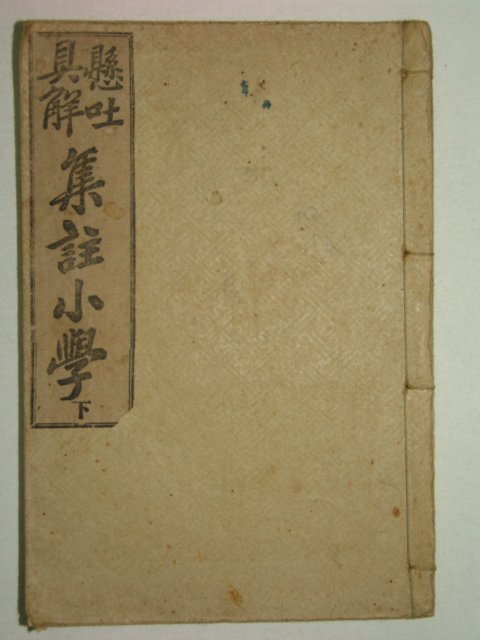 懸吐
具解
集註小學
下